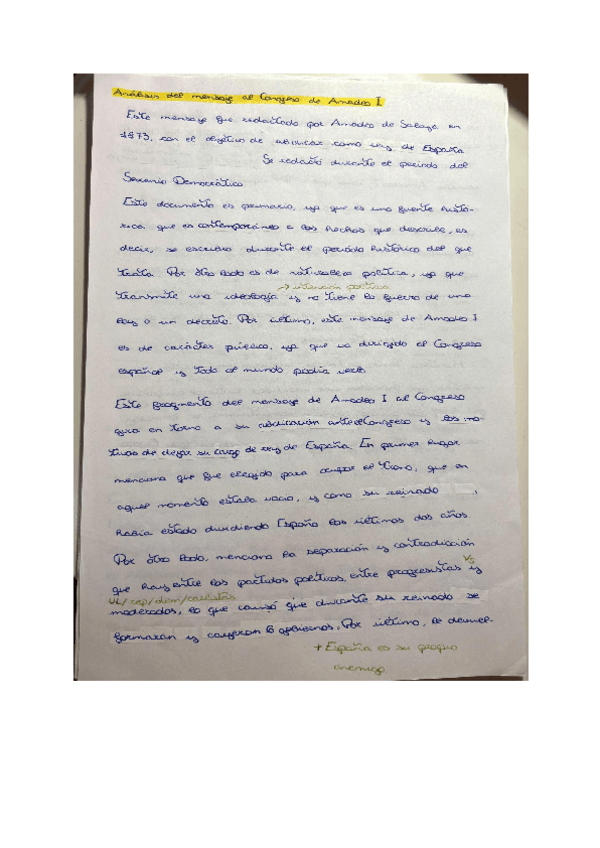 Análisis del mensaje al Congreso de Amadeo I
Este mensaje fue redactado por Amadeo de Saboya en
1873, con el objetivo de abdicar como rey de España
Se redactó durante el periodo del
Sexenio Democrático
Este documento es primario, ya que es una fuente histó-
rica que es contemporánea a los hechos que describe, es
decir, se escribió durante el periodo histórico del que
trata. Por otro lado es de naturaleza política, ya que
→ intención política
transmite una ideología y no tiene la fuerza de una
ley o un decreto. Por último, este mensaje de Amadeo I
es de carácter público, ya que va dirigido al Congreso
español y todo el mundo podía verlo
Este fragmento del mensaje de Amadeo I al Congreso
gira en torno a su abdicación ante el Congreso y los mo-
tivos de dejar su cargo de rey de España. En primer lugar
menciona que fue elegido para ocupar el trono, que en
aquel momento estaba vacío, y como su reinado ,
había estado dividiendo España los últimos dos años.
Por otro lado, menciona la separación y contradicción
que hay entre los partidos políticos, entre progresistas y
vs
UL/rep/dem/carlistas
moderados, lo que causó que durante su reinado se
formaran y cayeran 6 gobiernos. Por último, le
+ España es su propio
enemigo